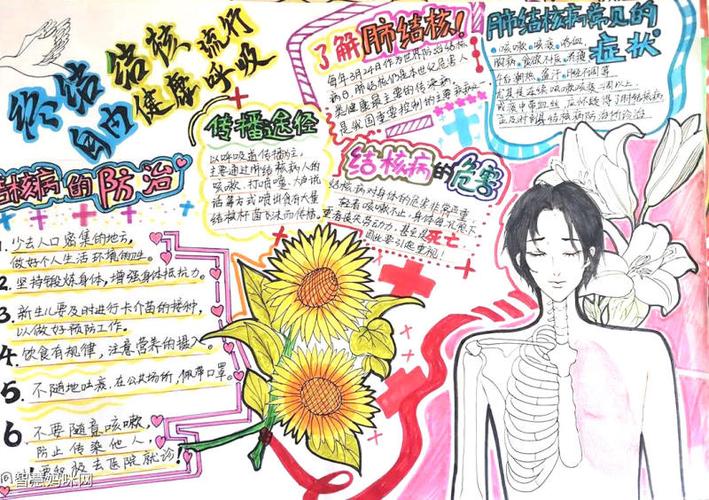 终结 结核 流行
自由 健康 呼吸
了解肺结核!
每年3月24日作为世界防治结核
病日 肺结核仍是本世纪危害人
类健康最主要的传染病,
是我国重要控制的主要疾病之
肺结核病常见的
症状
咳嗽、咳痰、咯血、
胸痛、食欲不振、
午后潮热、盗汗、
尤其是连续咳嗽咳痰2周以上
或痰中带血丝,应怀疑得了肺结核病
应及时到结核病防治所诊治。
传播途径
以呼吸道传播为主,
主要通过肺结核病人的
咳嗽、打喷嚏、大声说
话等方式喷出含有大量
结核杆菌飞沫而传播。
结核病的危害
结核病对身体的危害非常严重
轻者咳嗽不止,身体
重者丧失劳动力,甚至是死亡
因此要引起重视!
结核病的防治
1. 少去人口密集的地方,
做好个人生活环境的卫生。
2. 坚持锻炼身体,增强身体抵抗力。
3. 新生儿要及时进行卡介苗的接种,
以做好预防工作。
4. 饮食有规律,注意营养的摄入。
5. 不随地吐痰,在公共场所,佩带口罩。
6 不要随意咳嗽,
防止传染他人,
去医院就诊!
@智慧妈咪网